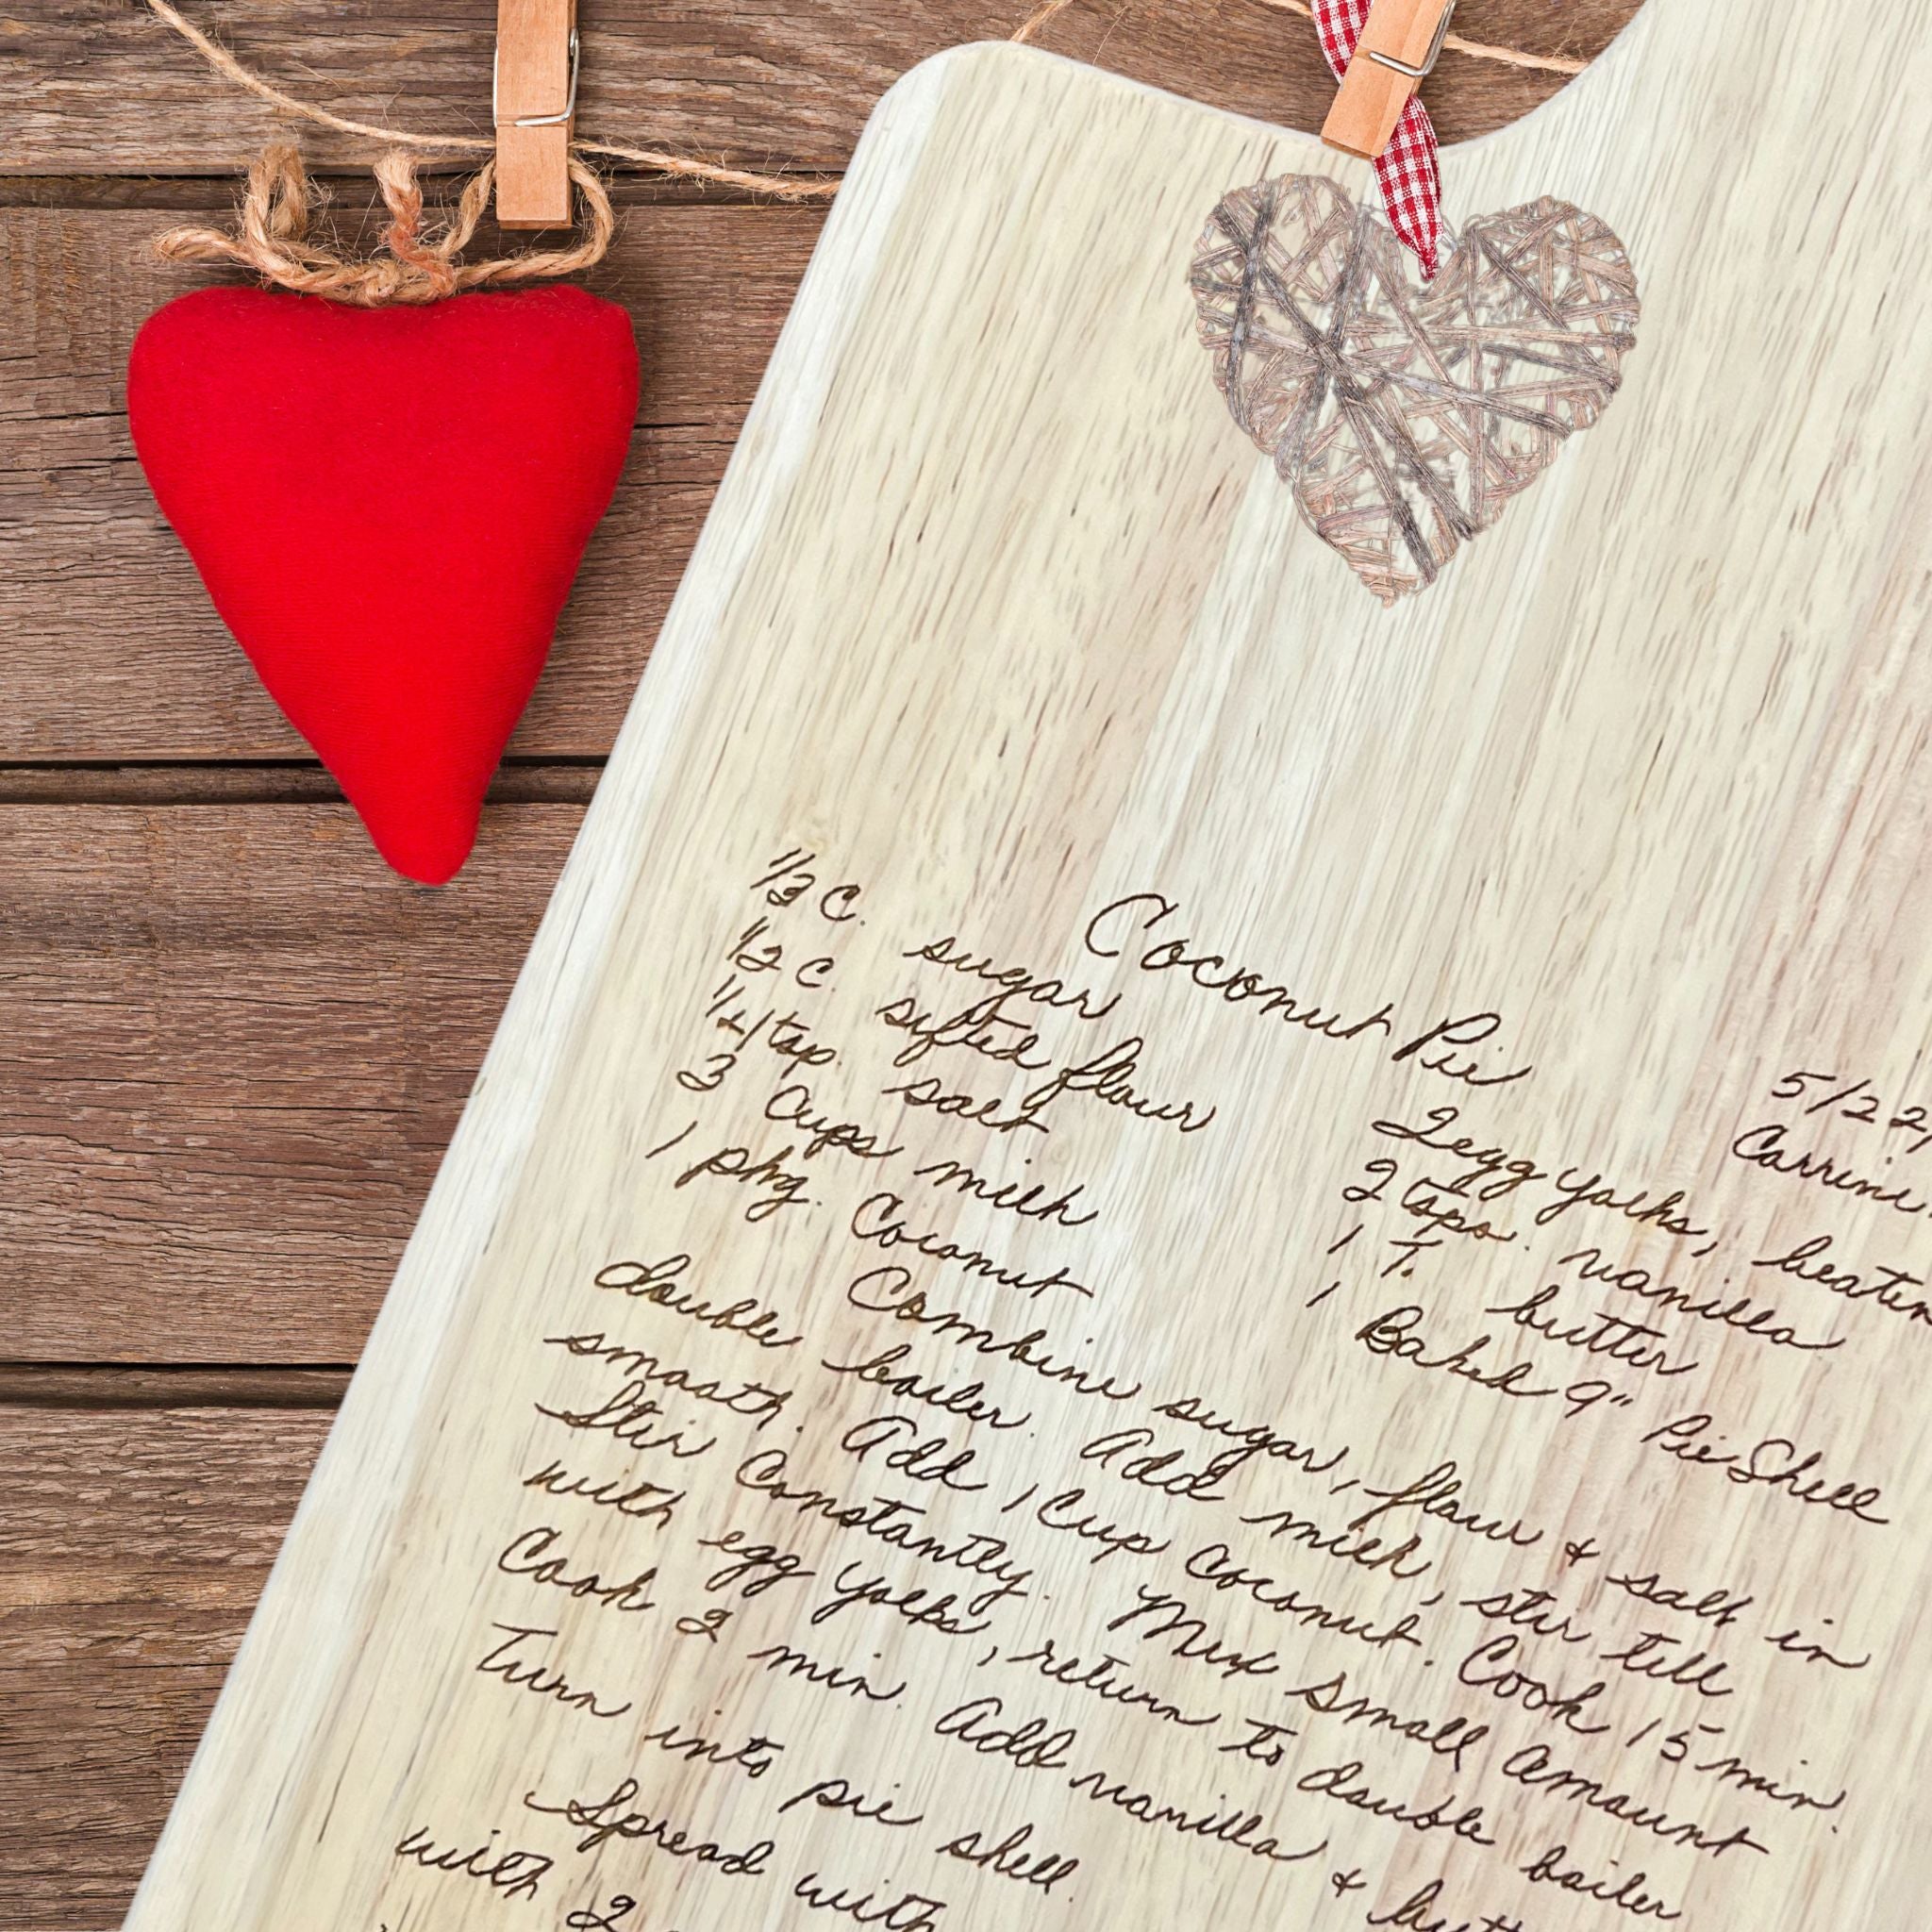 Coconut Pie
5/22/
Corrine
1/3 C. sugar
1/2 C. sifted flour
1/4 tsp. salt
3 Cups milk
1 pkg. Coconut
2 egg yolks, beaten
2 tsps. vanilla
1 T. butter
1 Baked 9" Pie Shell
Combine sugar, flour & salt in
double boiler. Add milk, stir till
smooth. Add 1 Cup Coconut. Cook 15 min.
Stir Constantly. Mix small amount
with egg yolks, return to double boiler
Cook 2 min. Add vanilla & butt
Turn into pie shell.
Spread with
with 2